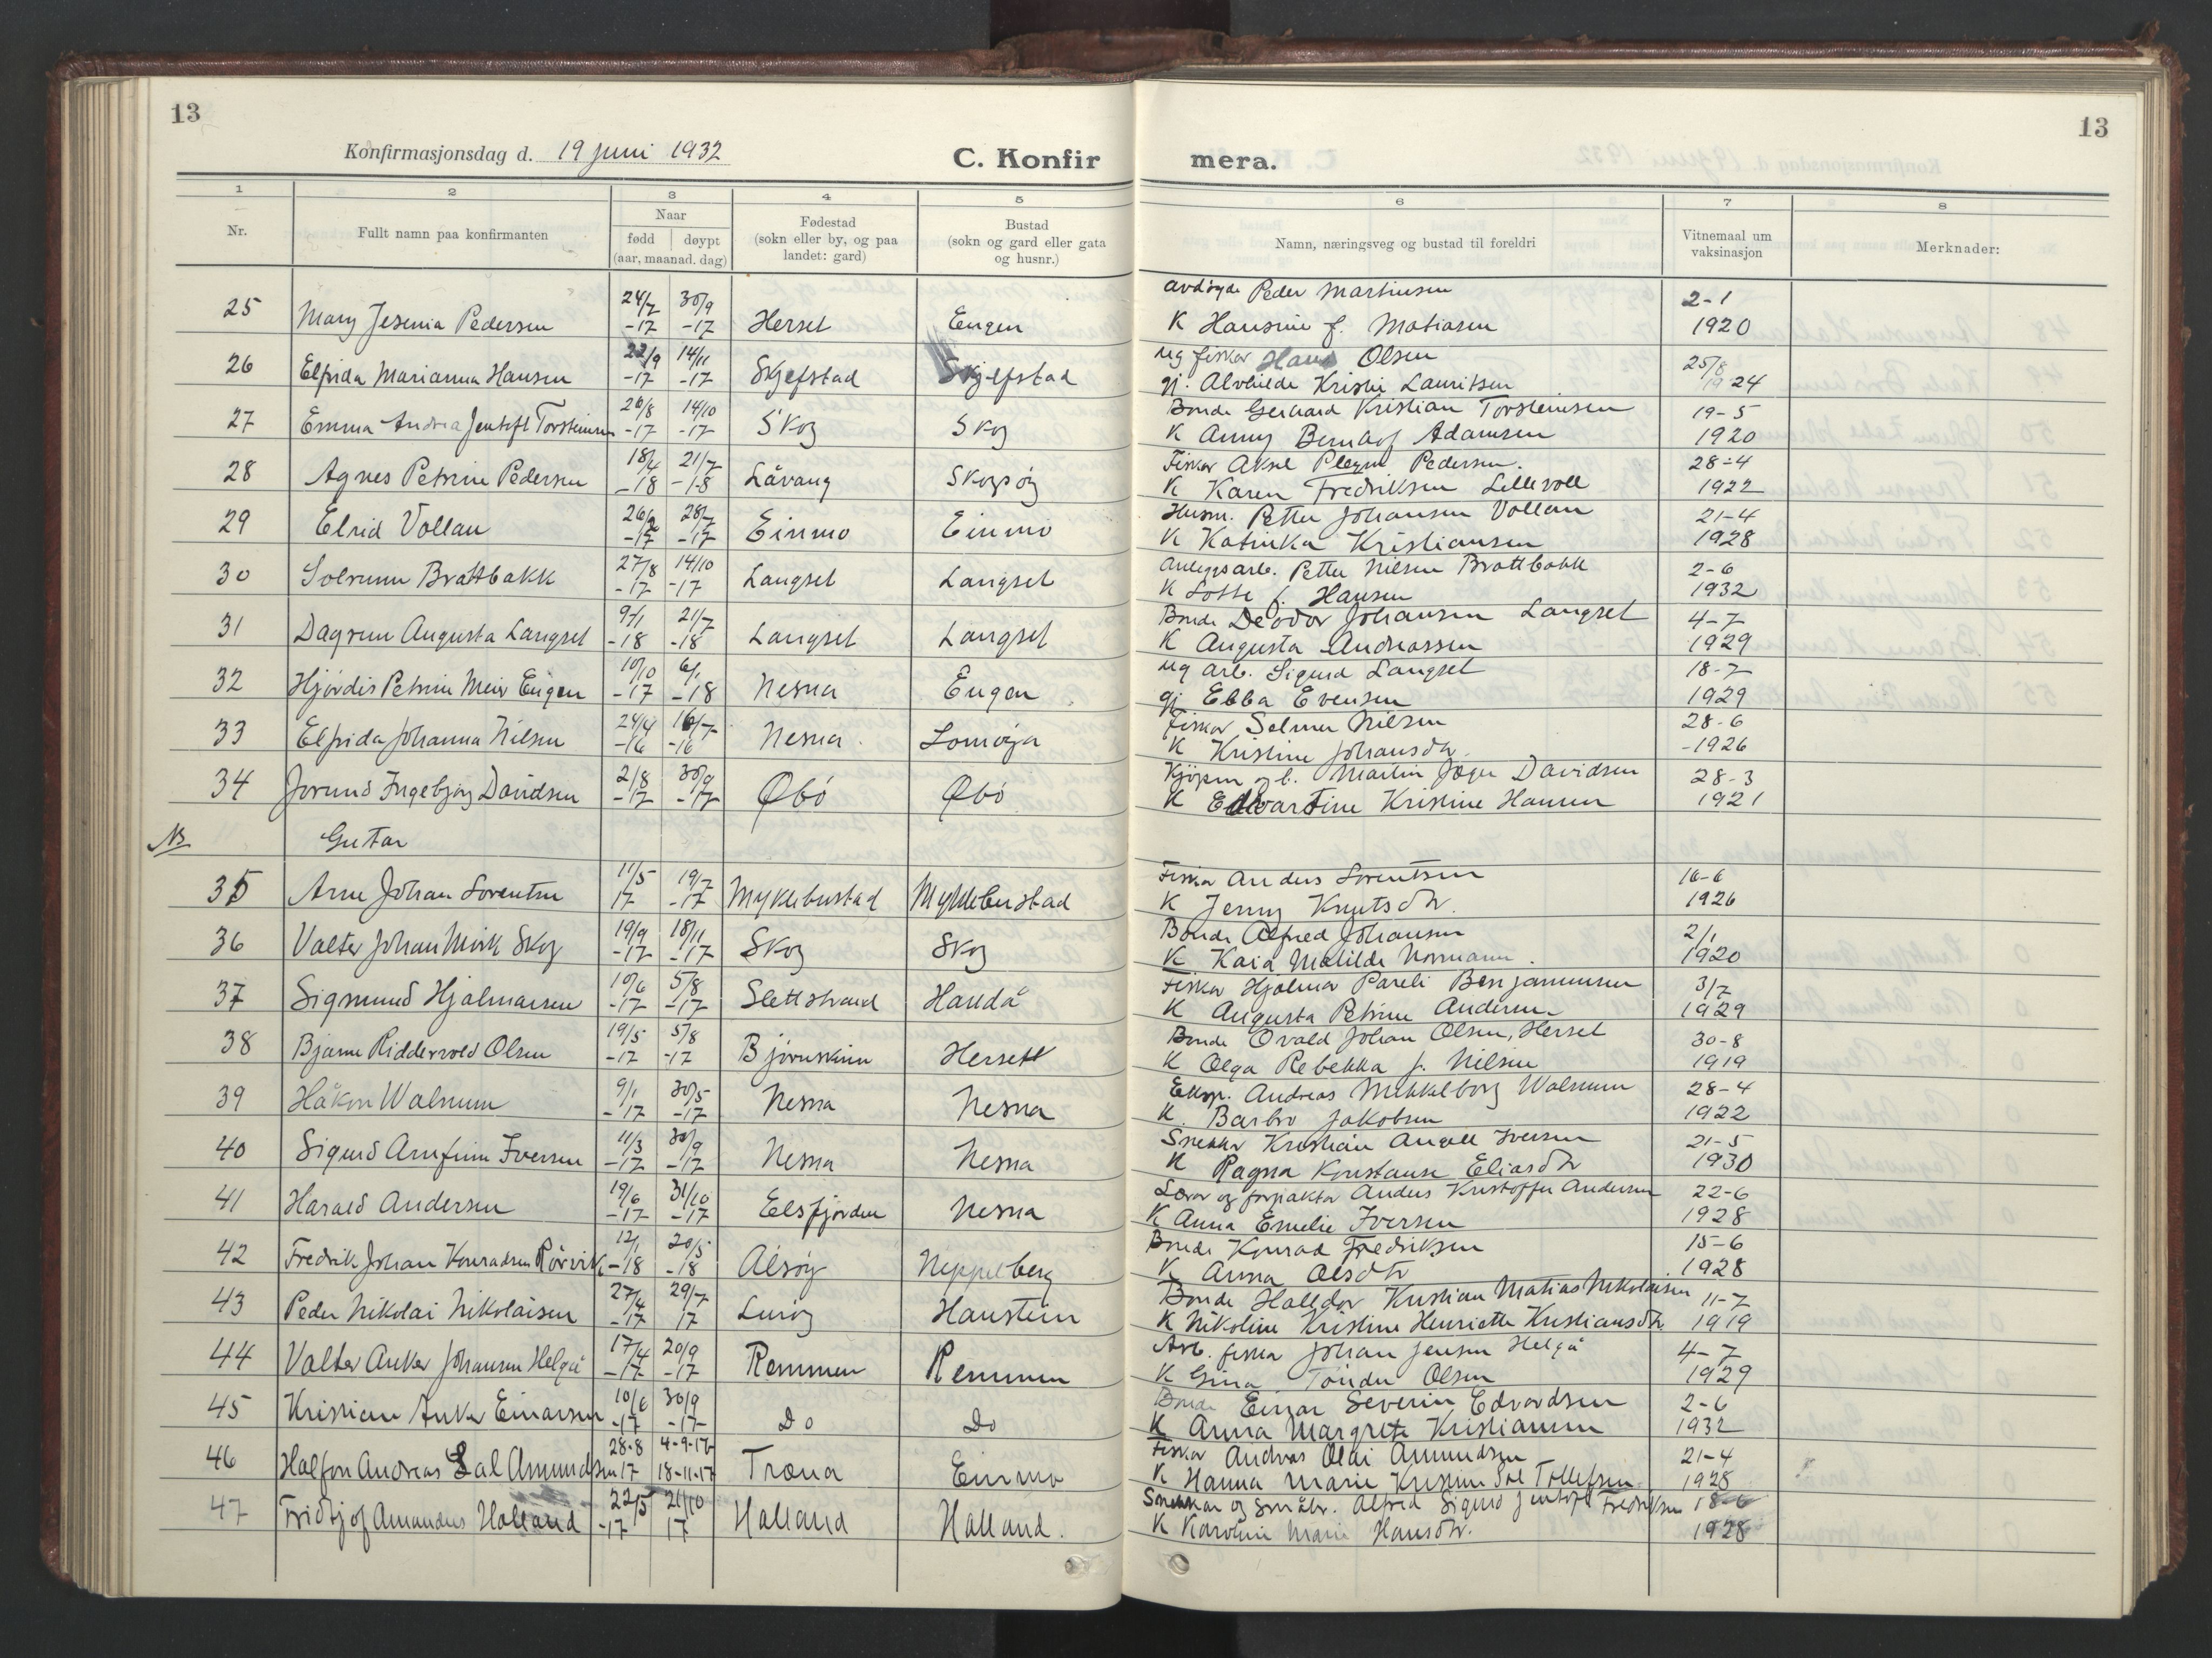 13
Konfirmasjonsdag d. 19 juni 1932
C. Konfir
mera.
13
1 2 3 4 5 6 7 8
Nr.
Fullt namn paa konfirmanten
Naar
fødd døypt
(aar, maanad. dag)
Fødestad
(sokn eller by, og paa
landet: gard)
Bustad
(sokn og gard eller gata
og husnr.)
Namn, næringsveg og bustad til foreldri
Vitnemaal um
vaksinasjon
Merknader:
25 Mary Jesenia Pedersen 24/7 -17 30/9 -17 Herset Engen avdøyde Peder Martinsen 2-1
K Hansine f. Matiasen 1920
26 Elfrida Marianna Hansen 22/9 -17 14/11 -17 Skjefstad Skjelfstad ug fiskar Hans Olsen 25/8
gj. Alvhilde Kristi Lauritsen 1924
27 Emma Andrea Jentoft Torsteinsen 26/8 -17 14/10 -17 Skog Skog Bonde Gerhard Kristian Torsteinsen 19-5
K Anny Adamsen 1920
28 Agnes Petrine Pedersen 18/4 -18 21/7 -18 Låvang Skogsøy Fiskar Aksel Pedersen. 28-4
K Karen Fredriksen Lillevoll 1922
29 Elrid Vollan 26/2 -17 28/7 -17 Einmo Einmo Husm. Petter Johansen Vollan 21-4
K Katinka Kristiansen 1928
30 Solrunn Brattbakk 27/8 -17 14/10 -17 Langset Langset Anleggsarb. Petter Nilsen Brattbakk 2-6
K Lotte f. Hansen 1932
31 Dagrun Augusta Langset 9/1 -18 21/7 -18 Langset Langset Bonde Deodor Johansen Langset 4-7
K Augusta Andreassen 1929
32 Hjördis Petrine Meier Engen 10/10 -17 6/1 -18 Nesna Engen ug arb. Sigurd Langset 18-7
gj Ebba Evensen 1929
33 Elfrida Johanna Nilsen 24/4 -16 16/7 -16 Nesna Lomøya Fiskar Selmer Nilsen 28-6
K Kristine Johansdtr. -1926
34 Jorund Ingebjørg Davidsen 2/8 -17 30/9 -17 Øbø Øbø Kjøpm og b. Martin Jøger Davidsen 28-3
K Edvartine Kristine Hansen 1921
NB Gutar
35 Arne Johan Lorentsen 11/5 17 19/7 -17 Myklebustad Myklebustad Fiskar Anders Lorentsen 16-6
K Jenny Knutsdtr. 1926
36 Valter Johan Meik Skog 19/9 -17 18/11 -17 Skog Skog Bonde Alfred Johansen 2/1
K Kaia Matilde Normann. 1920
37 Sigmund Hjalmarsen 10/6 -17 5/8 -17 Slettstrand Handå Fiskar Hjalmar Pareli Benjaminsen 3/7
K Augusta Petrine Andersen 1929
38 Bjarne Riddervold Olsen 19/5 -17 5/8 -17 Bjørnskinn Hersett Bonde Ovald Johan Olsen, Herset 30-8
K Olga Rebekka f. Nilsen 1919
39 Håkon Walnum 9/1 -17 30/5 -17 Nesna Nesna Eksp. Andreas Mekkelborg Walnum 28-4
K. Barbro Jakobsen 1922
40 Sigurd Arnfinn Iversen 11/3 -17 30/9 -17 Nesna Nesna Snekkar Kristian Angell Iversen 21-5
K Ragna Konstanse Eliasdtr 1930
41 Harald Andersen 19/6 -17 31/10 -17 Elsfjorden Nesna Lærar og forpaktar Anders Kristoffer Andersen 22-6
K Anna Emelie Iversen 1928
42 Fredrik Johan Konradsen Rörvik 12/1 -18 20/5 -18 Alsøy Neppelberg Bonde Konrad Fredriksen 15-6
K Anna Olsdtr 1928
43 Peder Nikolai Nikolaisen 27/4 -17 29/7 17 Lurøy Haustein Bonde Halldor Kristian Matias Nikolaisen 11-7
K Nikoline Kristine Henriette Kristiansdtr. 1919
44 Valter Anker Johansen Helgå 17/4 -17 20/9 -17 Remmen Remmen Arb. fiskar Johan Jensen Helgå 4-7
K Gina Tonder Olsen 1929
45 Kristian Anker Einarsen 10/6 -17 30/9 -17 Do Do Bonde Einar Severin Edvardsen 2-6
K Anna Margrete Kristiansen 1932
46 Halfon Andreas Sal Amundsen 28-8 17 4-9-17 18-11-17 Træna Einmo Fiskar Andreas Olai Amundsen 21-4
K Hanna Marie Kristine Sal Tollefsen 1928
47 Fridtjof Amandus Halland 22/5 -17 21/10 17 Halland Halland. Snekkar og småbr. Alfred Sigurd Jentoft Fredriksen 18-6
K Karoline Marie Hansdtr. 1928